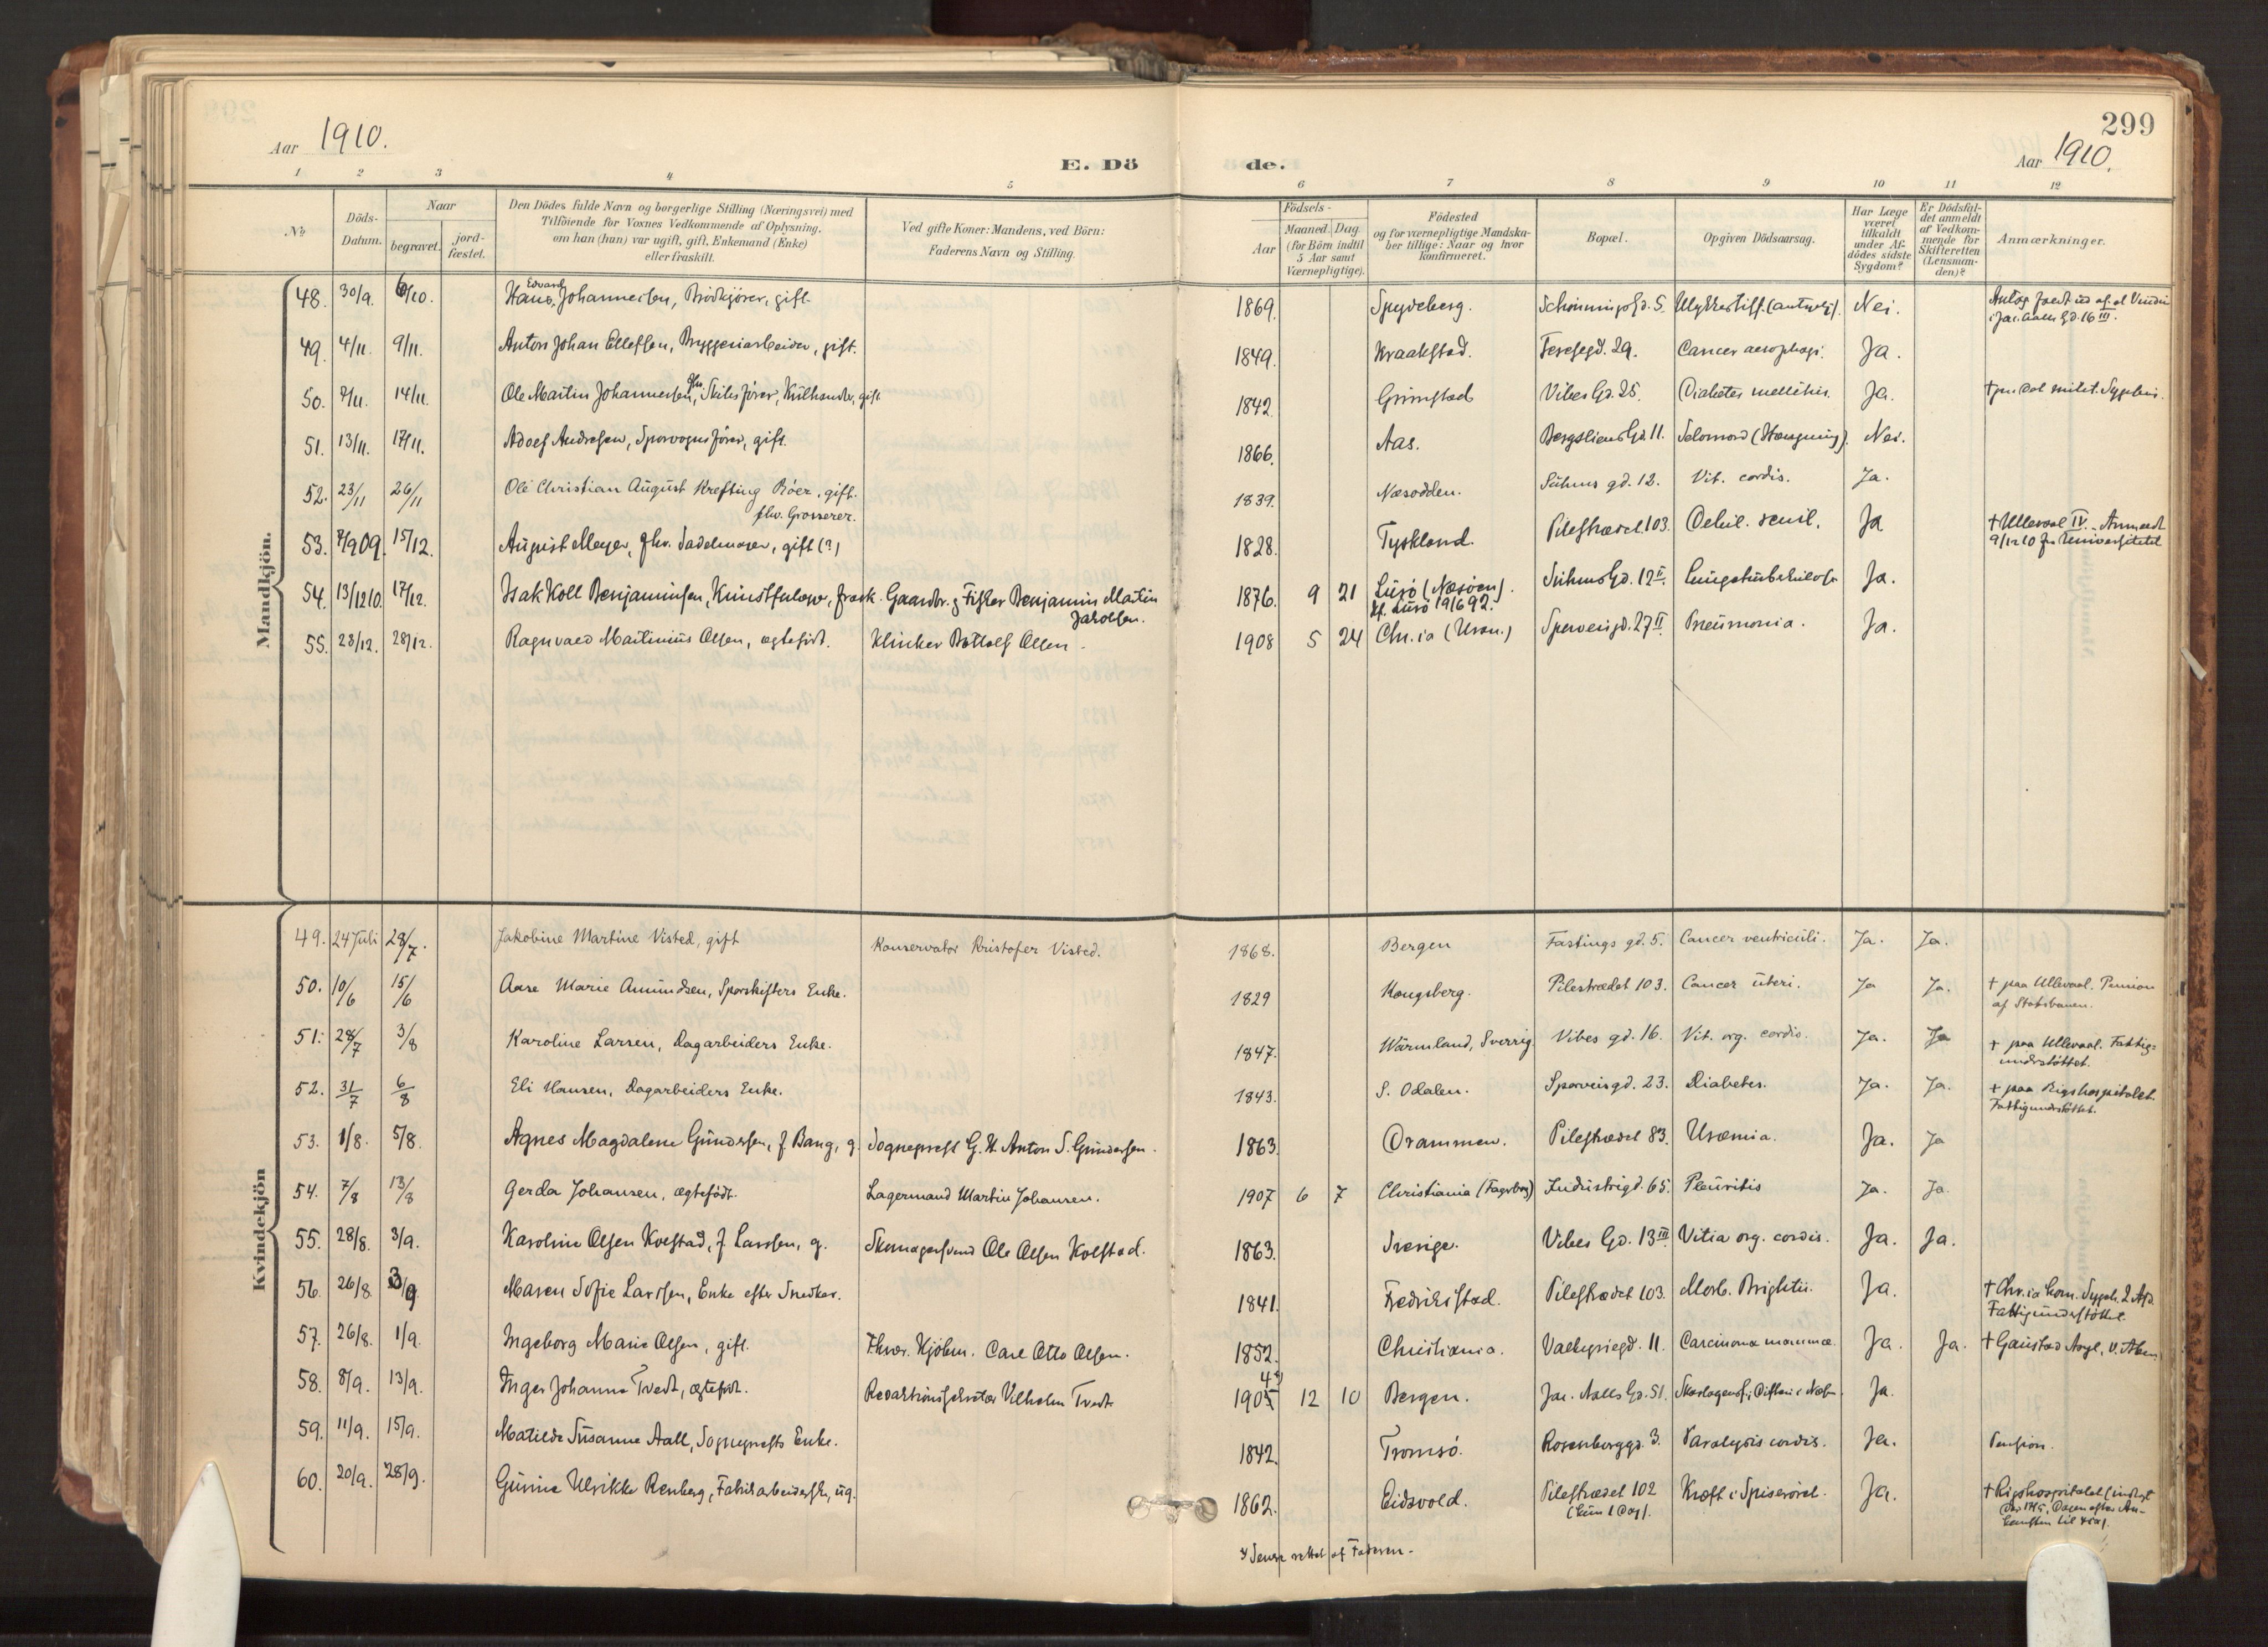 299
Aar 1910.
E. Dö de.
Aar 1910.
1 2 3 4 5 6 7 8 9 10 11 12
No
Döds-
Datum.
Naar
begravet.
jord-
fæstet.
Den Dödes fulde Navn og borgerlige Stilling (Næringsvei) med
Tilföiende for Voxnes Vedkommende af Oplysning,
om han (hun) var ugift, gift, Enkemand (Enke)
eller fraskilt.
Ved gifte Koner: Mandens, ved Börn:
Faderens Navn og Stilling.
Födsels-
Aar
Maaned. Dag.
(for Börn indtil
5 Aar samt
Værnepligtige).
Födested
og for værnepligtige Mandska-
ber tillige: Naar og hvor
konfirmeret.
Bopæl.
Opgiven Dödsaarsag.
Har Læge
været
tilkaldt
under Af-
dödes sidste
Sygdom?
Er Dödsfal-
det anmeldt
af Vedkom-
mende for
Skifteretten
(Lensman-
den)?
Anmærkninger.
Mandkjön.
48. 30/9. 6/10. Hans Edvard Johannesen, Brödkjörer, gift. 1869. Spydeberg. Schönnings Gd. 5. Nei.
49. 4/11. 9/11. Anton Johan Ellefsen, Bryggeriarbeider, gift. 1849. Kraakstad. Teresegd. 29. Cancer aesophagi. Ja.
50. 7/11. 14/11. Ole Martin Johannesen, fhv. Skibsförer, Kulhandler, gift 1842. Grimstad Vibes Gd. 25. Diabetes mellitus. Ja.
51. 13/11. 17/11. Adolf Andresen, Sporvognsförer, gift. 1866. Aas. Bergsliens Gd. 11. Selvmord (Hængning). Nei.
52. 23/11 26/11 Ole Christian August Krefting Böer, gift.
fhv. Grosserer. 1839. Næsodden. Suhms gd. 12. Vit. cordis. Ja.
53. 7/9 09. 15/12. August Meyer, fhv. Sadelmager, gift (?) 1828. Tyskland. Pilestrædet 103. Debil. senil. Ja + Ullevaal IV. Anmeldt
9/12 10 fra Universitetet
54. 13/12 10. 17/12. Isak Koll Benjaminsen, Kunstmaler, frask. Gaardbr. & Fisker Benjamin Martin
Jakobsen. 1876. 9 21 Lurö (Næsöen).
kf. Lurö 19/6 92. Suhms Gd. 12 II. Lungetuberkulose Ja.
55. 23/12. 28/12. Ragnvald Martinius Olsen, ægtefödt. Klinker Botolf Olsen. 1908 5 24 Chr.ia (Uran.) Sporveisgd. 27 II. Pneumonia. Ja.
Kvindekjön
49. 24 Juli 28/7. Jakobine Martine Visted, gift Konservator Kristofer Visted. 1868. Bergen Fastings gd. 5. Cancer ventriculi. Ja. Ja.
50. 10/6 15/6 Aase Marie Amundsen, Sporskifters Enke. 1829 Kongsberg. Pilestrædet 103. Cancer uteri. Ja Ja. + paa Ullevaal. Pension
af Statsbanen.
51. 28/7 3/8 Karoline Larsen, Dagarbeiders Enke. 1847. Wärmland, Sverrig. Vibes gd. 16. Vit. org. cordis. Ja. Ja + paa Ullevaal. Fattig-
understöttet.
52. 31/7 6/8 Eli Hansen, Dagarbeiders Enke. 1843. S. Odalen. Sporveisgd. 23. Diabetes. Ja. Ja. + paa Rigshospitalet.
Fattigunderstöttet.
53. 1/8. 5/8. Agnes Magdalene Gundersen, f. Bang, g. Sogneprest G. H. Anton S. Gundersen. 1863. Drammen. Pilestrædet 83. Uræmia. Ja. Ja
54. 7/8 13/8 Gerda Johansen, ægtefödt. Lagermand Martin Johansen. 1907 6 7 Christiania (Fagerborg) Industrigd. 65. Pleuritis Ja. Ja.
55. 28/8. 3/9. Karoline Olsen Kolstad, f. Larsen, g. Skomagersvend Ole Olsen Kolstad. 1863. Sverige. Vibes Gd. 13 III. Vitia org. cordis. Ja. Ja.
56. 26/8. 3/9 Maren Sofie Larsen, Enke efter Snedker. 1841. Fredrikstad. Pilestrædet 103. Morb. Brightii. Ja. + Chr.ia kom. Sygeh. 2 Afd.
Fattigunderstöttet.
57. 26/8. 1/9. Ingeborg Marie Olsen, gift. Fhv. Kjöbm. Carl Otto Olsen. 1852. Christiania. Valkyriegd. 11. Carcinoma mammæ. Ja. Ja. + Gaustad Asyl, V. Aker
58. 8/9. 13/9. Inger Johanne Tvedt, ægtefödt. Redaktionssekretær Vilhelm Tvedt 1905 4*) 12 10 Bergen. Jac. Aalls Gd. 51. Ja.
59. 11/9. 15/9. Matilde Susanne Aall, Sogneprests Enke. 1842. Tromsö. Rosenborggd. 3. Paralysis cordis. Ja. Pension.
60. 20/9. 28/9. Gunine Ulrikke Renberg, Fabrikarbeiderske, ug. 1862. Eidsvold. Pilestrædet 102
(kun 1 Dag). Kræft i Spiseröret. Ja. + Rigshospitalet
*) Senere rettet af Faderen.